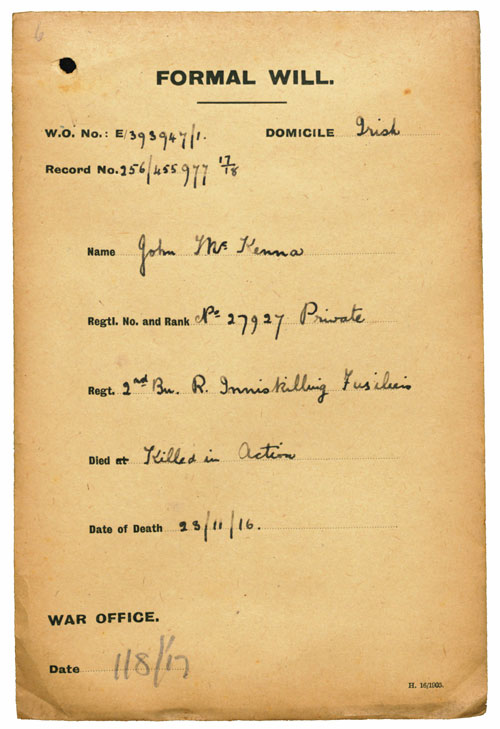 6
FORMAL WILL.
W.O. No.: E/393947/1. DOMICILE Irish
Record No. 256/455977 17/18
Name John McKenna
Regtl. No. and Rank No 27927 Private
Regt. 2nd Bn. R. Inniskilling Fusiliers
Died at Killed in Action
Date of Death 23/11/16.
WAR OFFICE.
Date 1/8/17
H. 16/1905.